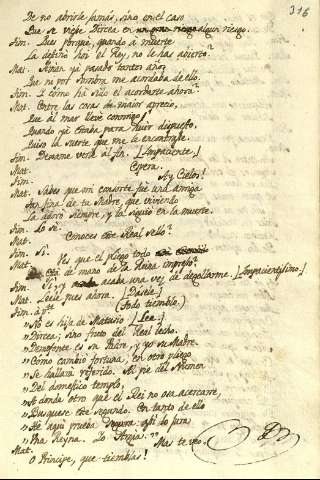 316
De no abrirle jamas, sino en el caso
Que se viese Dircea en algun riesgo.
Tim. Pues porque, quando à muerte
La destinò hoi el Rey, no le has abierto?
Mat. Havian ya pasado tantos años,
Que ni por sombra me acordaba de ello.
Tim. I cómo há sido el acordarte ahora?
Mat. Entre las cosas de maior aprecio,
Que al mar llevè conmigo,
Quando yà estaba para huir dispuesto,
Quiso la suerte que me le encontrase.
Tim. Dexame verle al fin. [Impaciente.]
Mat. Espera.
Tim. Ay Cielos!
Mat. Sabes que mi consorte fué una amiga
Tan fina de tu Madre, que viviendo
La adorò siempre, y la siguiò en la muerte.
Tim. Lo sé.
Mat. Conoces este Real sello?
Tim. Si.
Mat. Ves que el pliego todo
De mano de la Reina impreso?
Tim. Si; y acaba una vez de degollarme. [Impacientisimo.]
Mat. Leele pues ahora. [Dásele.]
Tim. à pte. (Todo tiemblo.)
"No es hija de Matusio [Lee.]
"Dircea; sino fruto del Real lecho.
"Demofonte es su Padre, y yo su Madre.
"Como cambiò fortuna, en otro pliego
"Se hallarà referido. Al pie del Numen
"Del domestico templo,
"A donde otro que el Rei no osa acercarse,
"Busquese este segundo. En tanto de ello
"He aqui prueba segura: asi lo jura
"Una Reyna. Lo Argia."
Mas te veo.
Mat. O Principe, que tiemblas!